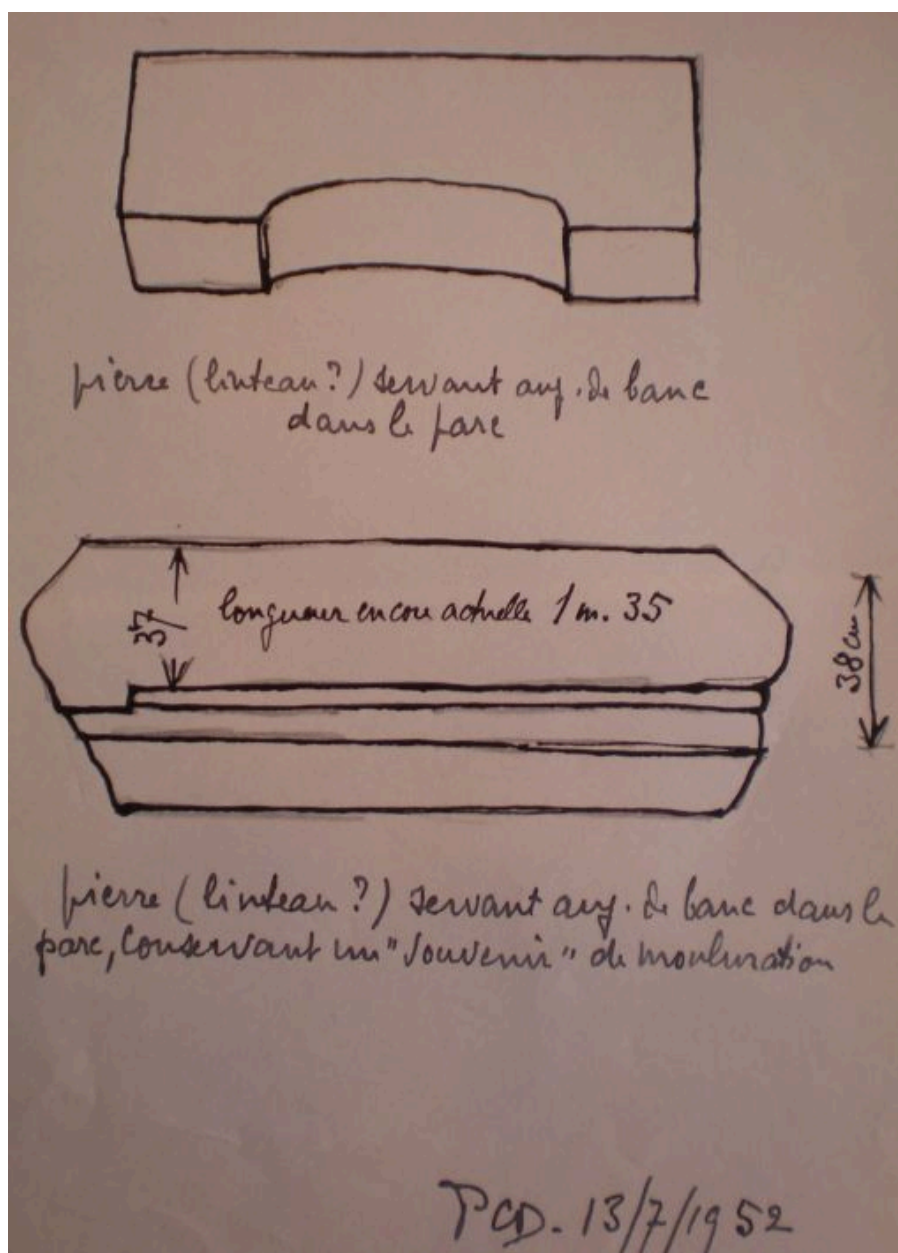 pierre (linteau ?) servant auj. de banc
dans le parc
37
longueur encore actuelle 1 m. 35
38 cm
pierre (linteau ?) servant auj. de banc dans le
parc, conservant un "souvenir" de mouluration
PCD. 13/7/1952